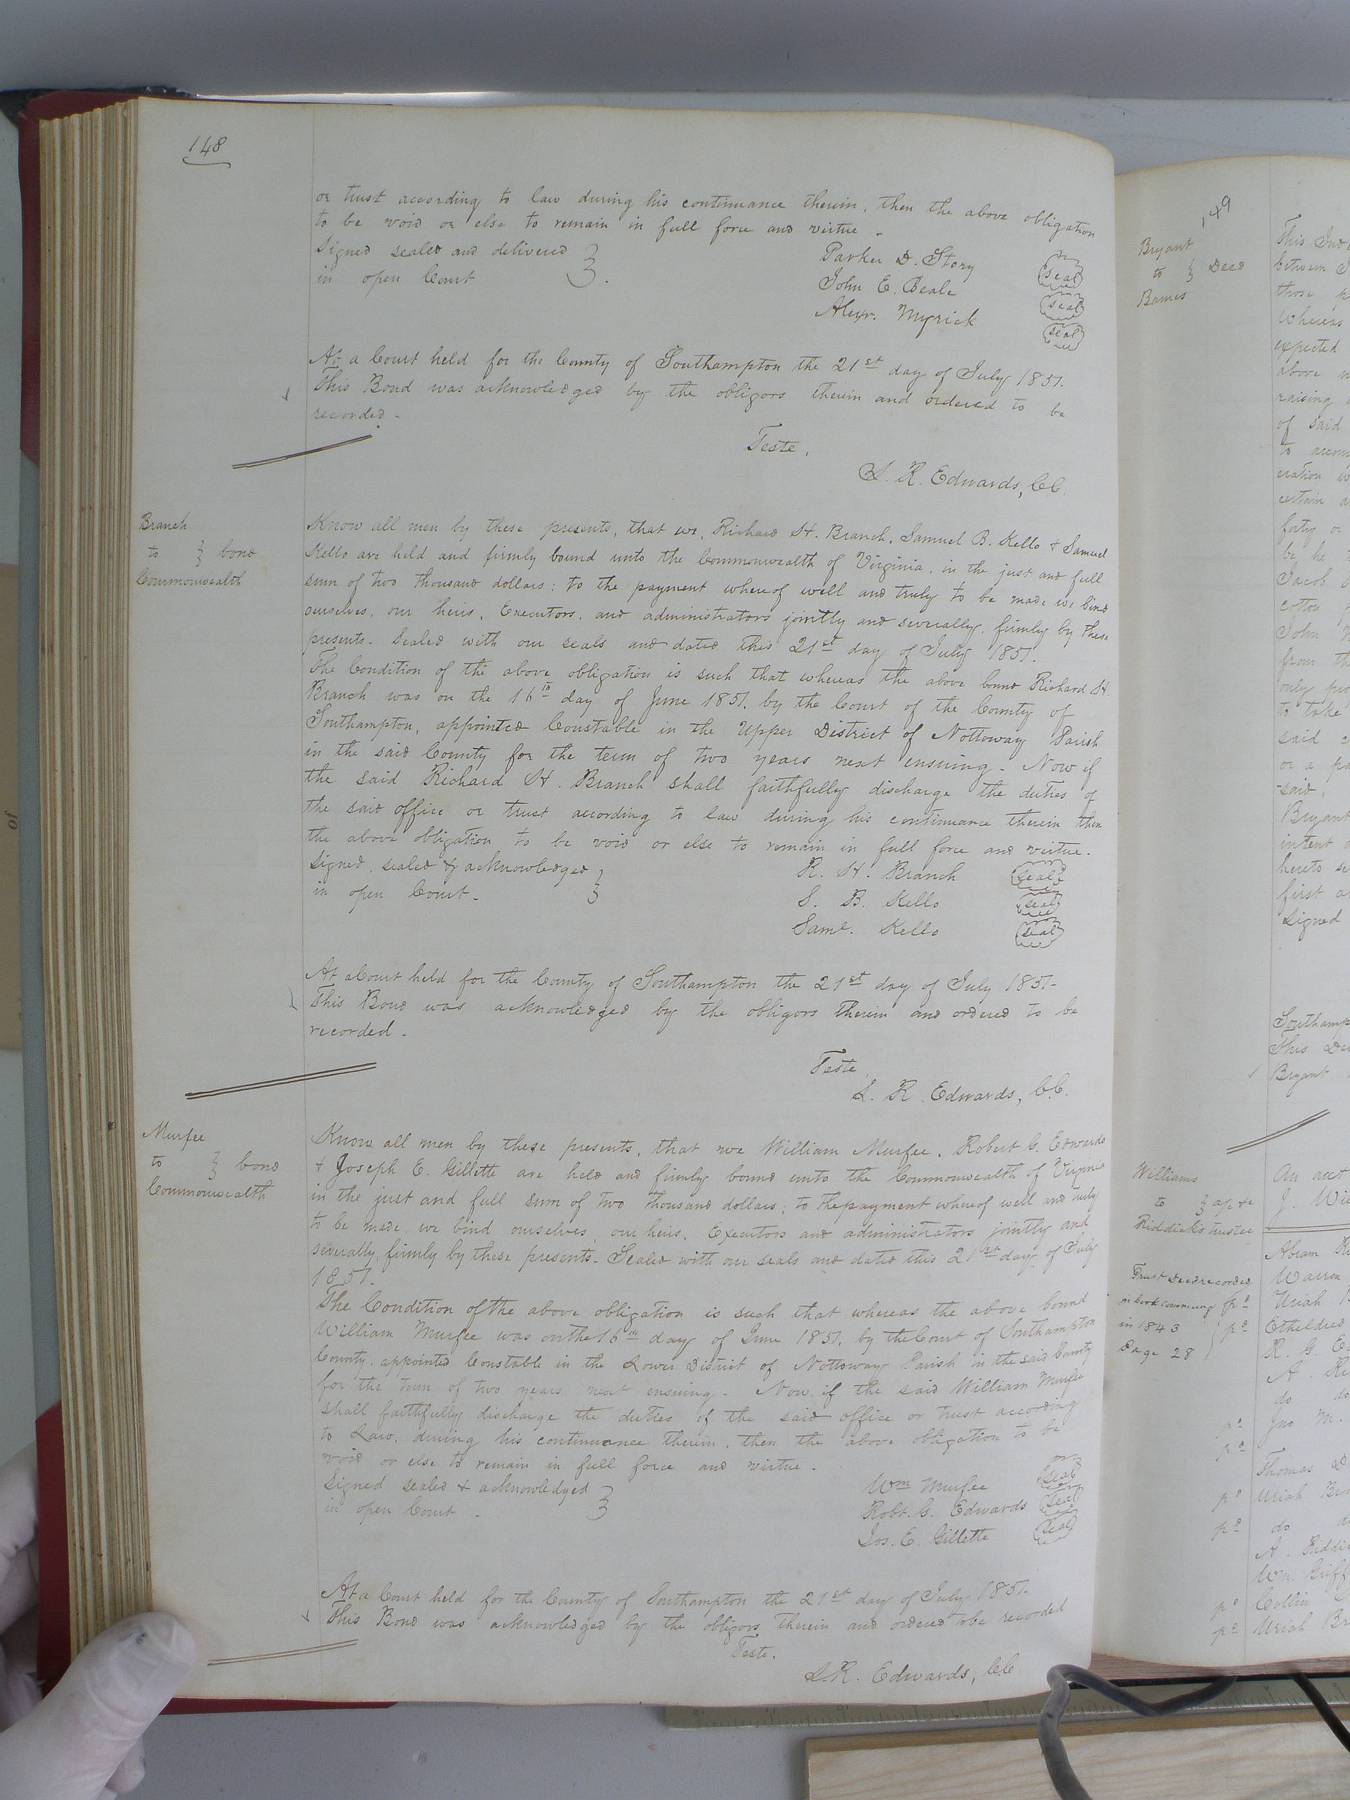 148
or trust according to law during his continuance therein, then the above obligation
to be void or else to remain in full force and virtue.
Signed sealed and delivered
in open Court
Parker D. Story seal
John E. Beale seal
Alexr. Myrick seal
At a Court held for the County of Southampton the 21st day of July 1851.
This Bond was acknowledged by the obligors therein and ordered to be
recorded.
Teste,
L. R. Edwards, C.C.
Branch
to bond
Commonwealth
Know all men by these presents, that we, Richard H. Branch, Samuel B. Kello & Samuel
Kello are held and firmly bound unto the Commonwealth of Virginia, in the just and full
sum of two thousand dollars; to the payment whereof well and truly to be made we bind
ourselves, our heirs, Executors, and administrators jointly and severally, firmly by these
presents. Sealed with our seals and dated this 21st day of July 1851.
The Condition of the above obligation is such that whereas the above bound Richard H.
Branch was on the 16th day of June 1851, by the Court of the County of
Southampton, appointed Constable in the Upper District of Nottoway Parish
in the said County for the term of two years next ensuing. Now if
the said Richard H. Branch shall faithfully discharge the duties of
the said office or trust according to law during his continuance therein then
the above obligation to be void or else to remain in full force and virtue.
Signed, sealed & acknowledged
in open Court.
R. H. Branch seal
S. B. Kello seal
Saml. Kello seal
At a Court held for the County of Southampton the 21st day of July 1851.
This Bond was acknowledged by the obligors therein and ordered to be
recorded.
Teste
L. R. Edwards, C.C.
Murfee
to bond
Commonwealth
Know all men by these presents, that we William Murfee, Robert G. Edwards
& Joseph E. Gillette are held and firmly bound unto the Commonwealth of Virginia
in the just and full sum of two thousand dollars; to the payment whereof well and truly
to be made, we bind ourselves, our heirs, Executors and administrators jointly and
severally, firmly by these presents. Sealed with our seals and dated this 21st day of July
1851.
The Condition of the above obligation is such that whereas the above bound
William Murfee was on the 16th day of June 1851, by the Court of Southampton
County, appointed Constable in the Lower District of Nottoway Parish in the said County
for the term of two years next ensuing. Now, if the said William Murfee
shall faithfully discharge the duties of the said office or trust according
to Law, during his continuance therein, then the above obligation to be
void or else to remain in full force and virtue.
Signed sealed & acknowledged
in open Court.
Wm Murfee seal
Robt. G. Edwards seal
Jos. E. Gillette seal
At a Court held for the County of Southampton the 21st day of July 1851.
This Bond was acknowledged by the obligors therein and ordered to be recorded
Teste.
L. R. Edwards, C.C
149
Bryant
to Deed
Barnes
This
between
those
Whereas
expected
above
raising
of said
to
certain
forty or
be he
Jacob
cotton
John
from the
only
to take
said
or a
said,
Bryant
intent
hereto
first
Signed
Southamp
This
Bryant
Williams
to
Riddick's trustee
Trust Deed recorded
in book commencing
in 1843
Page 28
An acct
J. Wil
Abram
Warren
Uriah
Etheldred
R. G.
A.
do do
Jno M.
Thomas
Uriah
do
A. Riddi
Wm. Griff
Collin
Uriah